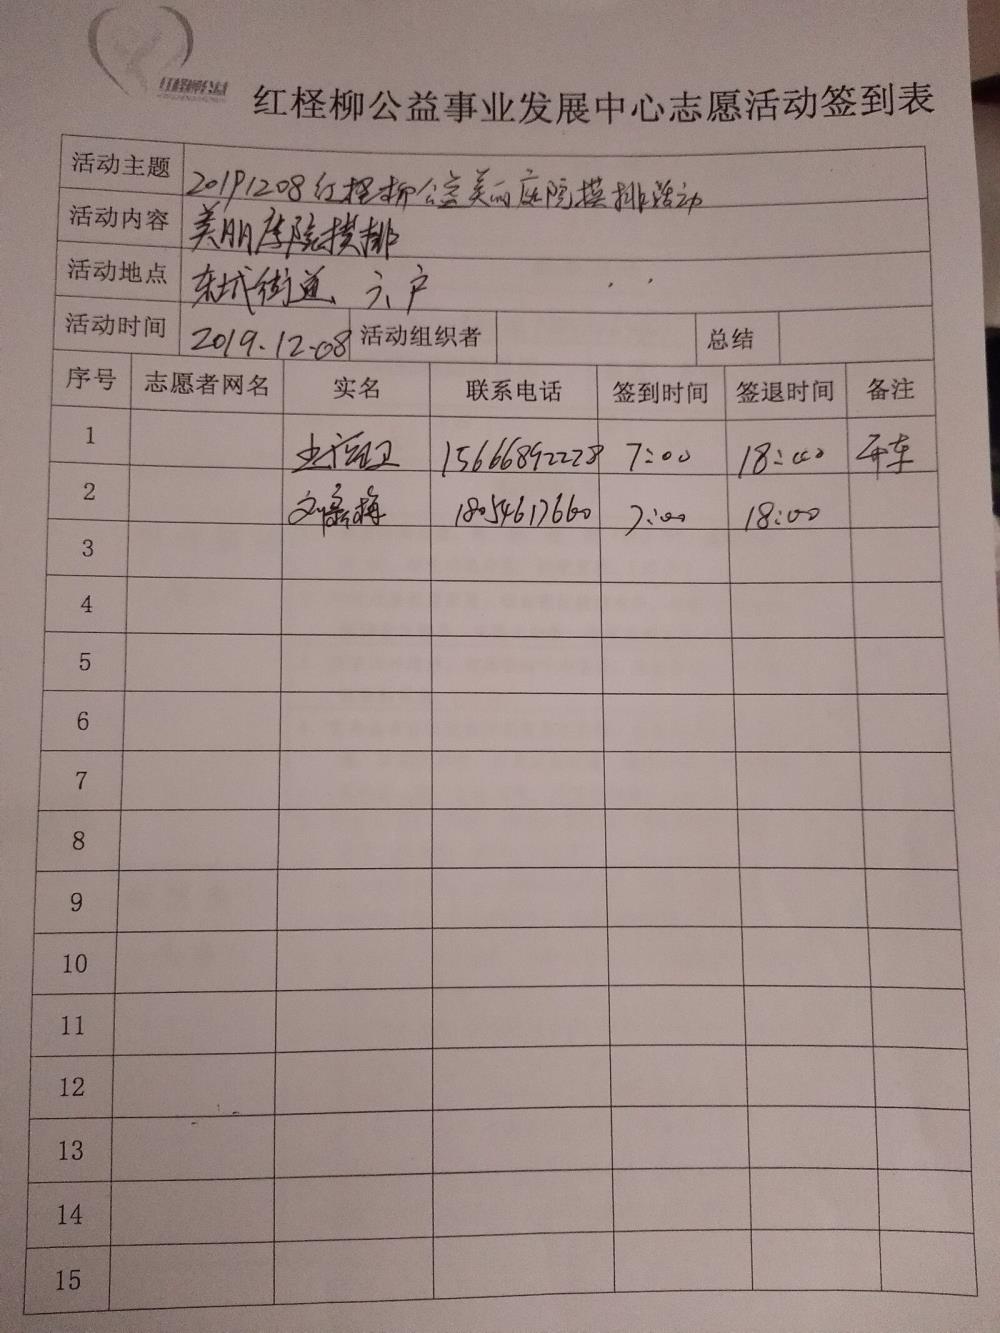 红柽柳公益事业发展中心志愿活动签到表
活动主题 20191208红柽柳公益美丽庭院摸排活动
活动内容 美丽庭院摸排
活动地点 东城街道、六户
活动时间 2019.12.08 活动组织者 总结
序号 志愿者网名 实名 联系电话 签到时间 签退时间 备注
1 15666892228 7:00 18:00 开车
2 刘 梅 18054617660 7:00 18:00
3
4
5
6
7
8
9
10
11
12
13
14
15